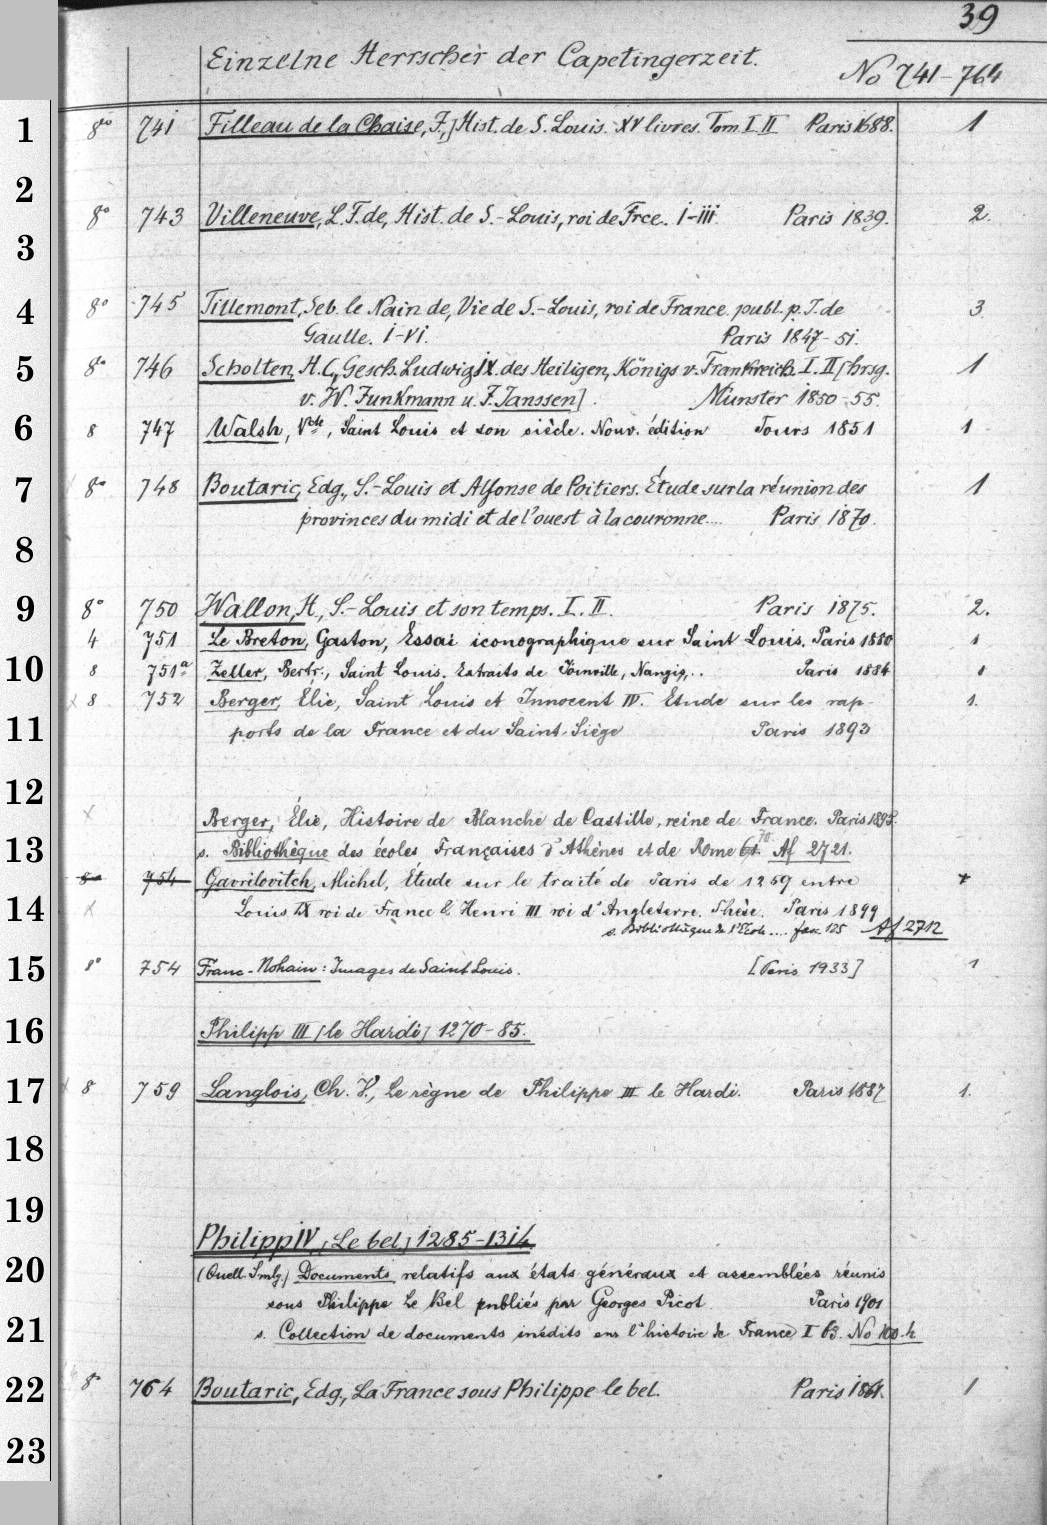 39
Einzelne Herrscher der Capetingerzeit.
No 741-764
1 8° 741 Filleau de la Chaise, F.,] Hist. de S. Louis. XV livres. Tom. I II Paris 1688. 1
2
8° 743 Villeneuve, L. F. de, Hist. de S.-Louis, roi de Frce. I-III. Paris 1839. 2.
3
4 8° 745 Tillemont, Seb. le Nain de, Vie de S.-Louis, roi de France. publ. p. J. de 3
Gaulle. I-VI. Paris 1847-51.
5 8° 746 Scholten, H. C., Gesch. Ludwig IX. des Heiligen, Königs v. Frankreich. I. II [hrsg. 1
v. W. Junkmann u. F. Janssen]. Münster 1850-55.
6 8 747 Walsh, Vcte, Saint Louis et son siècle. Nouv. édition Tours 1851 1
7 8° 748 Boutaric, Edg., S.-Louis et Alfonse de Poitiers. Étude sur la réunion des 1
provinces du midi et de l'ouest à la couronne... Paris 1870.
8
9 8° 750 Wallon, H., S.-Louis et son temps. I. II. Paris 1875. 2.
4 751 Le Breton, Gaston, Essai iconographique sur Saint Louis. Paris 1880 1
10 8 751a Zeller, Bertr., Saint Louis. Extraits de Joinville, Nangis,.. Paris 1884 1
x 8 752 Berger, Élie, Saint Louis et Innocent IV. Etude sur les rap- 1.
11 ports de la France et du Saint-Siège Paris 1893
12
x Berger, Élie, Histoire de Blanche de Castille, reine de France. Paris 1895.
13 s. Bibliothèque des écoles Françaises d'Athènes et de Rome 61. 70 Af 2721.
8° 754 Gavrilovitch, Michel, Étude sur le traité de Paris de 1259 entre 1
14 x Louis IX roi de France & Henri III roi d'Angleterre. Thèse. Paris 1899
s. Bibliothèque de l'École.... fasc. 125 Af 2712
15 8° 754 Franc-Nohain: Images de Saint Louis. [Paris 1933] 1
16 Philipp III [le Hardi] 1270-85.
17 x 8 759 Langlois, Ch. V., Le règne de Philippe III le Hardi. Paris 1887 1.
18
19
Philipp IV [Le bel] 1285-1314
20 (Quell. Smlg.) Documents relatifs aux états généraux et assemblées réunis
sous Philippe Le Bel publiés par Georges Picot. Paris 1901
21 s. Collection de documents inédits sur l'histoire de France I 63. No 100.h
22 8° 764 Boutaric, Edg., La France sous Philippe le bel. Paris 1861. 1
23